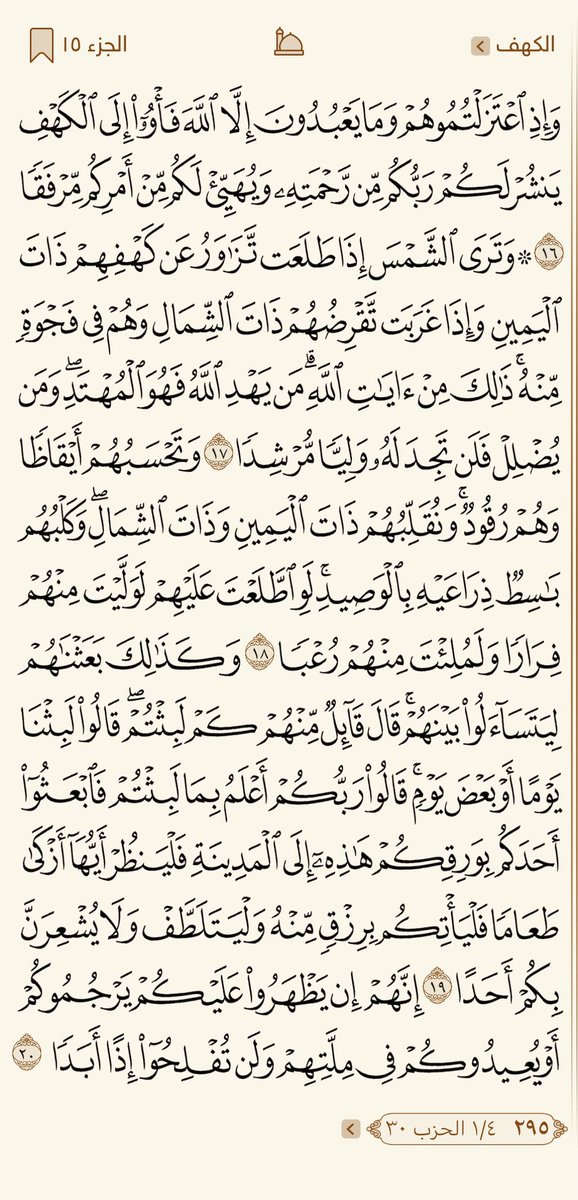 الكهف
الجزء ١٥
وَإِذِ ٱعۡتَزَلۡتُمُوهُمۡ وَمَا يَعۡبُدُونَ إِلَّا ٱللَّهَ فَأۡوُۥٓاْ إِلَى ٱلۡكَهۡفِ
يَنشُرۡ لَكُمۡ رَبُّكُم مِّن رَّحۡمَتِهِۦ وَيُهَيِّئۡ لَكُم مِّنۡ أَمۡرِكُم مِّرۡفَقٗا
١٦ ۞ وَتَرَى ٱلشَّمۡسَ إِذَا طَلَعَت تَّزَٰوَرُ عَن كَهۡفِهِمۡ ذَاتَ
ٱلۡيَمِينِ وَإِذَا غَرَبَت تَّقۡرِضُهُمۡ ذَاتَ ٱلشِّمَالِ وَهُمۡ فِي فَجۡوَةٖ
مِّنۡهُۚ ذَٰلِكَ مِنۡ ءَايَٰتِ ٱللَّهِۗ مَن يَهۡدِ ٱللَّهُ فَهُوَ ٱلۡمُهۡتَدِۖ وَمَن
يُضۡلِلۡ فَلَن تَجِدَ لَهُۥ وَلِيّٗا مُّرۡشِدٗا ١٧ وَتَحۡسَبُهُمۡ أَيۡقَاظٗا
وَهُمۡ رُقُودٞۚ وَنُقَلِّبُهُمۡ ذَاتَ ٱلۡيَمِينِ وَذَاتَ ٱلشِّمَالِۖ وَكَلۡبُهُم
بَٰسِطٞ ذِرَاعَيۡهِ بِٱلۡوَصِيدِۚ لَوِ ٱطَّلَعۡتَ عَلَيۡهِمۡ لَوَلَّيۡتَ مِنۡهُمۡ
فِرَارٗا وَلَمُلِئۡتَ مِنۡهُمۡ رُعۡبٗا ١٨ وَكَذَٰلِكَ بَعَثۡنَٰهُمۡ
لِيَتَسَآءَلُواْ بَيۡنَهُمۡۚ قَالَ قَآئِلٞ مِّنۡهُمۡ كَمۡ لَبِثۡتُمۡۖ قَالُواْ لَبِثۡنَا
يَوۡمًا أَوۡ بَعۡضَ يَوۡمٖۚ قَالُواْ رَبُّكُمۡ أَعۡلَمُ بِمَا لَبِثۡتُمۡ فَٱبۡعَثُوٓاْ
أَحَدَكُم بِوَرِقِكُمۡ هَٰذِهِۦٓ إِلَى ٱلۡمَدِينَةِ فَلۡيَنظُرۡ أَيُّهَآ أَزۡكَىٰ
طَعَامٗا فَلۡيَأۡتِكُم بِرِزۡقٖ مِّنۡهُ وَلۡيَتَلَطَّفۡ وَلَا يُشۡعِرَنَّ
بِكُمۡ أَحَدًا ١٩ إِنَّهُمۡ إِن يَظۡهَرُواْ عَلَيۡكُمۡ يَرۡجُمُوكُمۡ
أَوۡ يُعِيدُوكُمۡ فِي مِلَّتِهِمۡ وَلَن تُفۡلِحُوٓاْ إِذًا أَبَدٗا ٢٠
٢٩٥ ١/٤ الحزب ٣٠